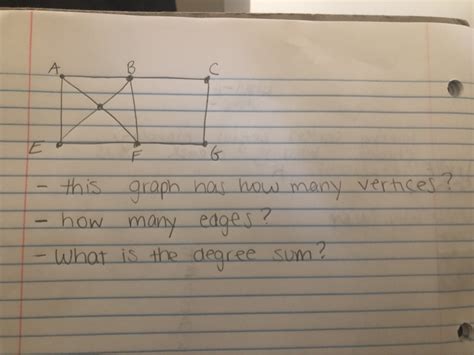 A B C
E F G
- this graph has how many vertices?
- how many edges?
- What is the degree sum?